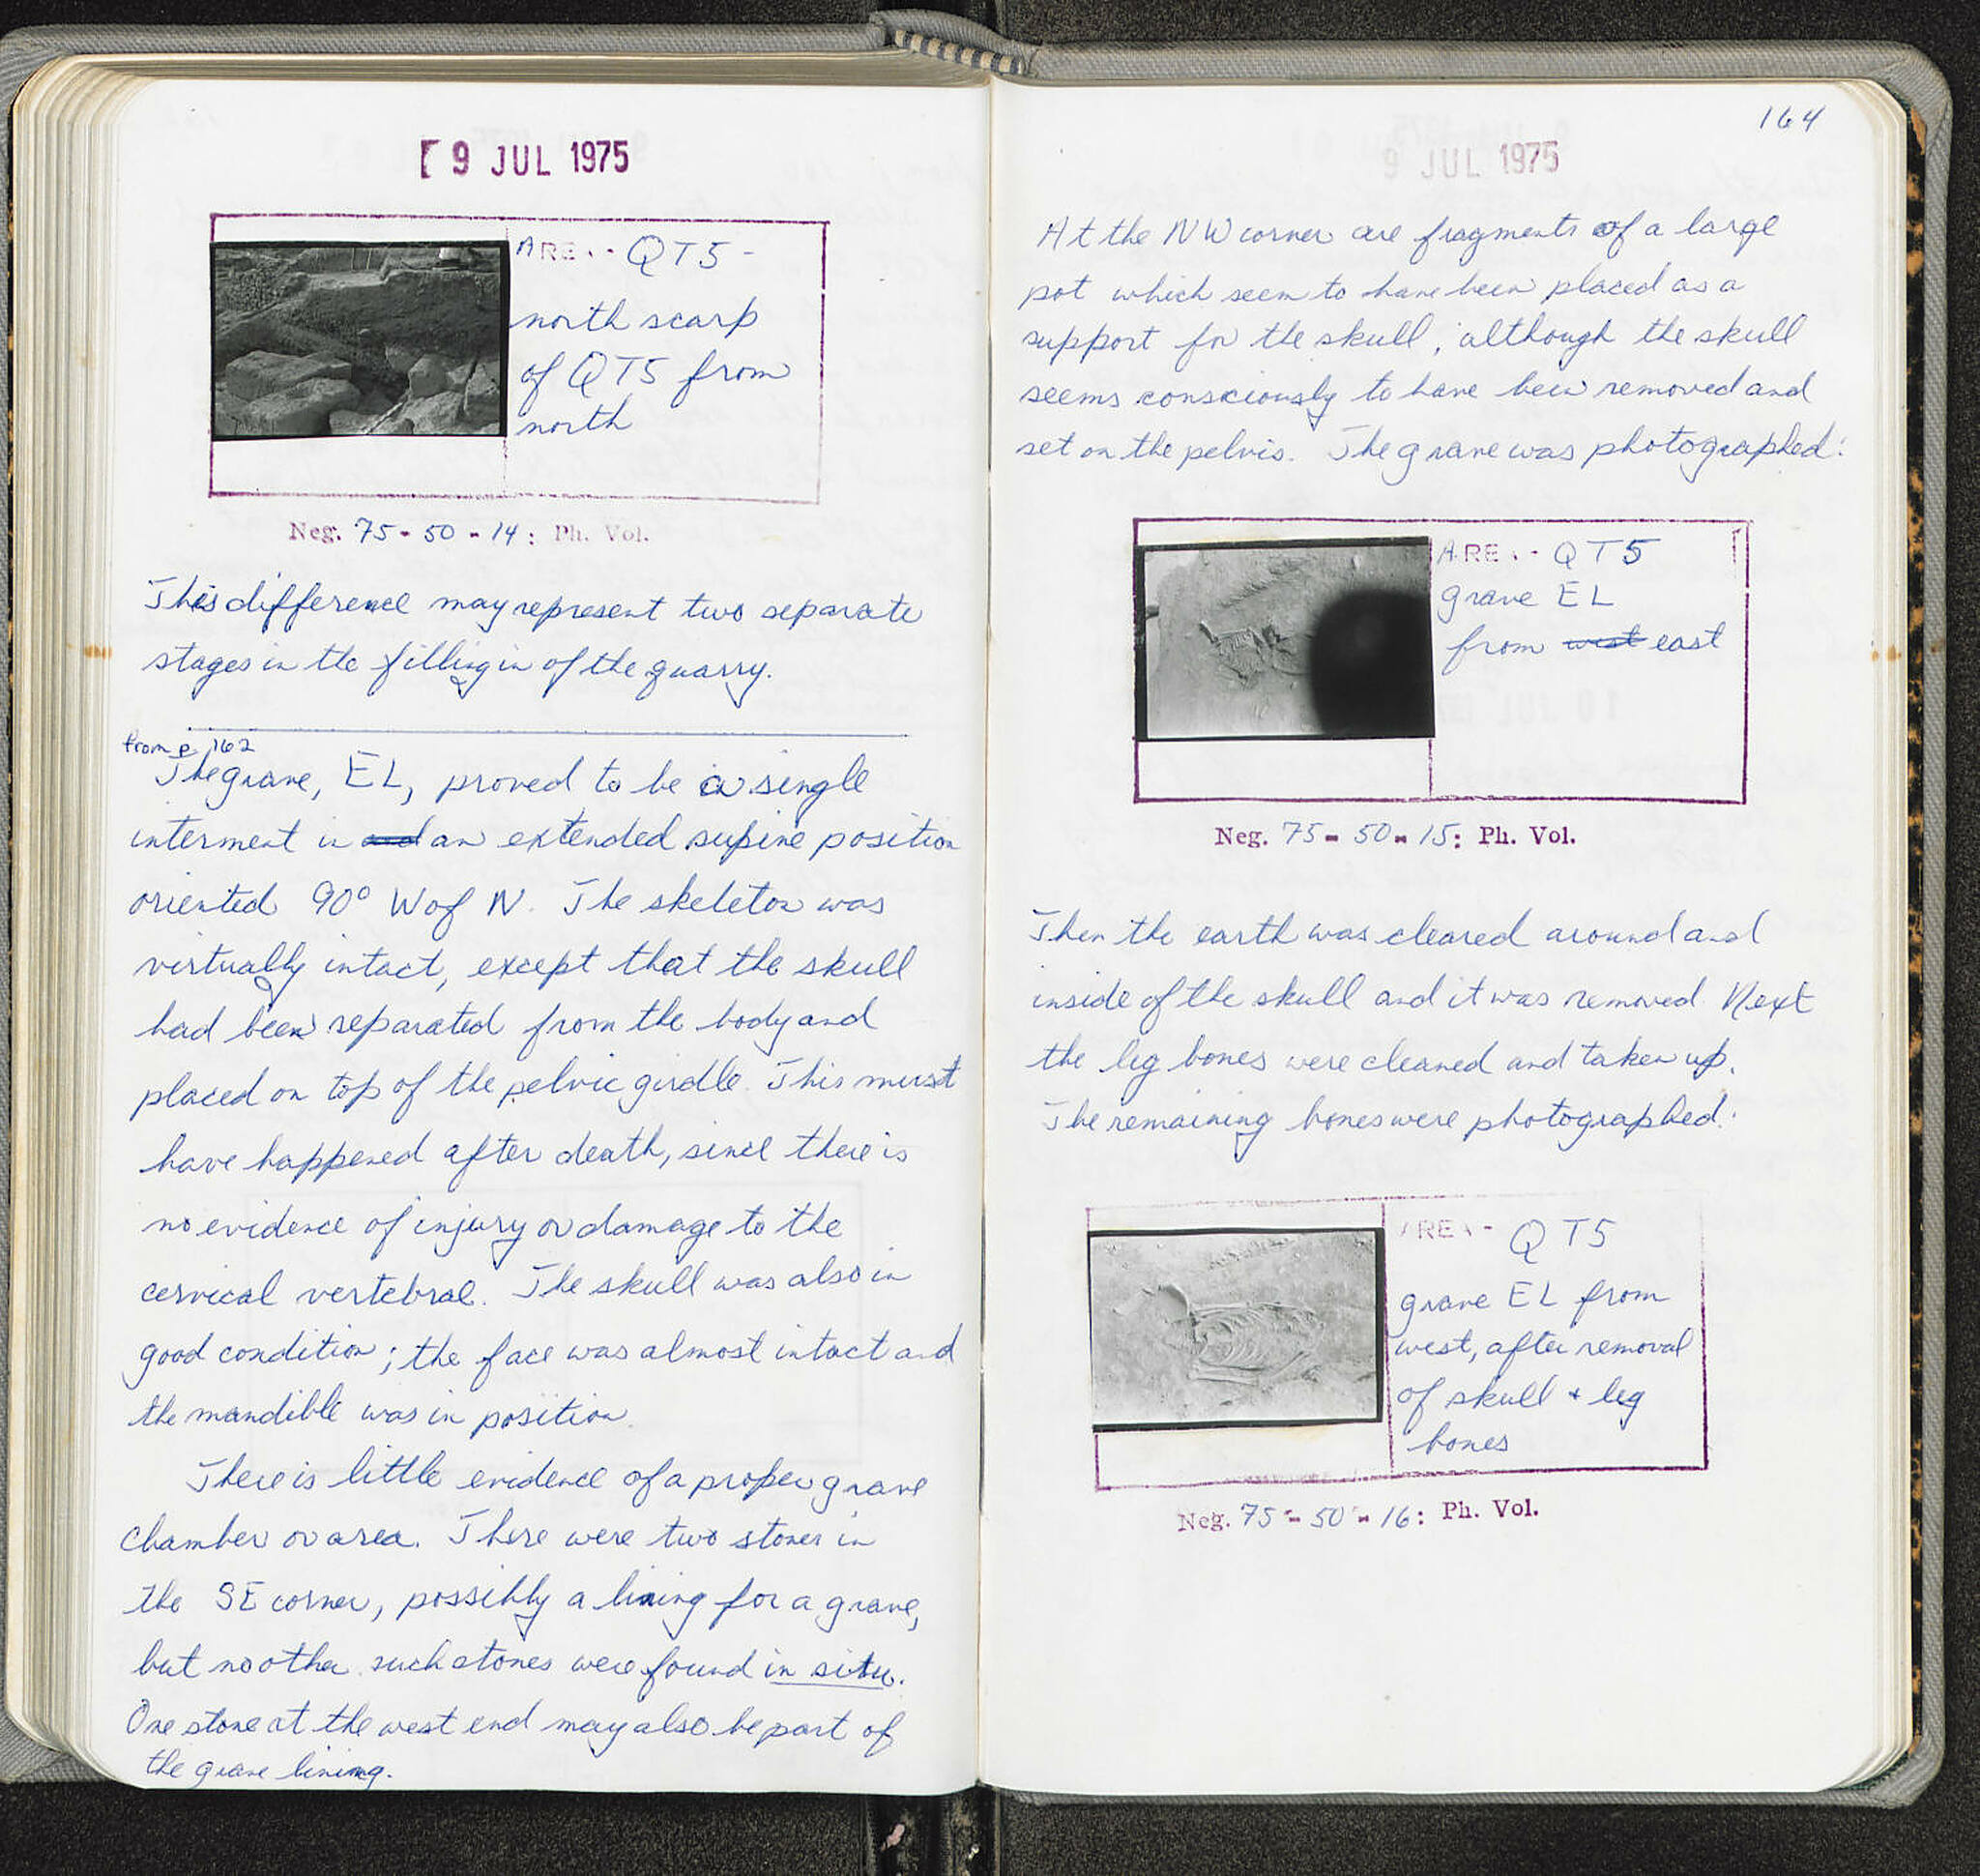 9 JUL 1975
AREA - QT5 -
north scarp
of QT5 from
north
Neg. 75 - 50 - 14 : Ph. Vol.
This difference may represent two separate
stages in the filling in of the quarry.
from p. 162
The grave, EL, proved to be a single
interment in and an extended supine position
oriented 90° W of N. The skeleton was
virtually intact, except that the skull
had been separated from the body and
placed on top of the pelvic girdle. This must
have happened after death, since there is
no evidence of injury or damage to the
cervical vertebrae. The skull was also in
good condition; the face was almost intact and
the mandible was in position.
There is little evidence of a proper grave
chamber or area. There were two stones in
the SE corner, possibly a lining for a grave,
but no other such stones were found in situ.
One stone at the west end may also be part of
the grave lining.
164
9 JUL 1975
At the NW corner are fragments of a large
pot which seem to have been placed as a
support for the skull, although the skull
seems consciously to have been removed and
set on the pelvis. The grave was photographed:
AREA - QT5
grave EL
from west east
Neg. 75 - 50 - 15 : Ph. Vol.
Then the earth was cleared around and
inside of the skull and it was removed Next
the leg bones were cleaned and taken up.
The remaining bones were photographed:
AREA - QT5
grave EL from
west, after removal
of skull + leg
bones
Neg. 75 - 50 - 16 : Ph. Vol.